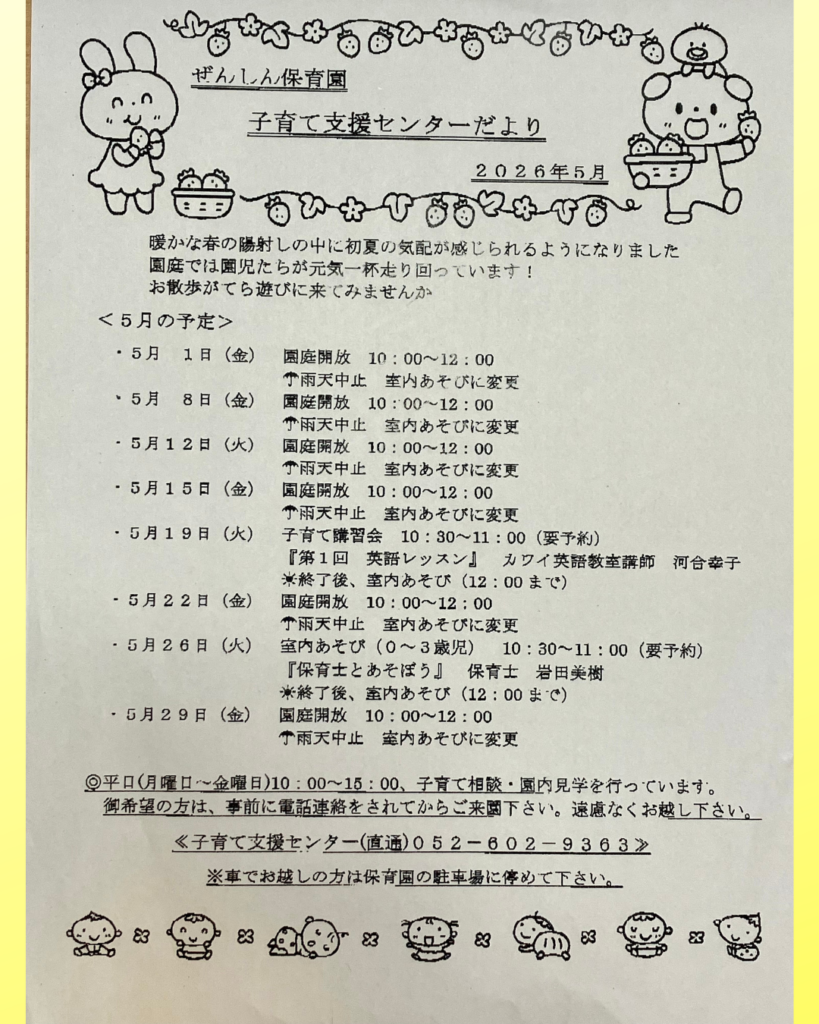 ぜんしん保育園
子育て支援センターだより
2026年5月
暖かな春の陽射しの中に初夏の気配が感じられるようになりました
園庭では園児たちが元気一杯走り回っています!
お散歩がてら遊びに来てみませんか
<5月の予定>
・5月 1日(金) 園庭開放 10:00~12:00
☂雨天中止 室内あそびに変更
・5月 8日(金) 園庭開放 10:00~12:00
☂雨天中止 室内あそびに変更
・5月12日(火) 園庭開放 10:00~12:00
☂雨天中止 室内あそびに変更
・5月15日(金) 園庭開放 10:00~12:00
☂雨天中止 室内あそびに変更
・5月19日(火) 子育て講習会 10:30~11:00(要予約)
『第1回 英語レッスン』 カワイ英語教室講師 河合幸子
※終了後、室内あそび(12:00まで)
・5月22日(金) 園庭開放 10:00~12:00
☂雨天中止 室内あそびに変更
・5月26日(火) 室内あそび(0~3歳児) 10:30~11:00(要予約)
『保育士とあそぼう』 保育士 岩田美樹
※終了後、室内あそび(12:00まで)
・5月29日(金) 園庭開放 10:00~12:00
☂雨天中止 室内あそびに変更
◎平日(月曜日~金曜日)10:00~15:00、子育て相談・園内見学を行っています。
御希望の方は、事前に電話連絡をされてからご来園下さい。遠慮なくお越し下さい。
≪子育て支援センター(直通)052-602-9363≫
※車でお越しの方は保育園の駐車場に停めて下さい。